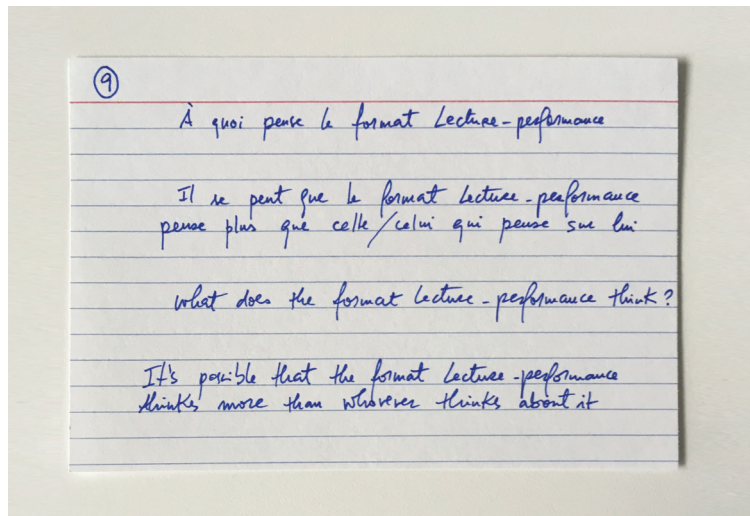 9
À quoi pense le format Lecture-performance
Il se peut que le format Lecture-performance
pense plus que celle/celui qui pense sur lui
what does the format Lecture-performance think?
It's possible that the format Lecture-performance
thinks more than whoever thinks about it